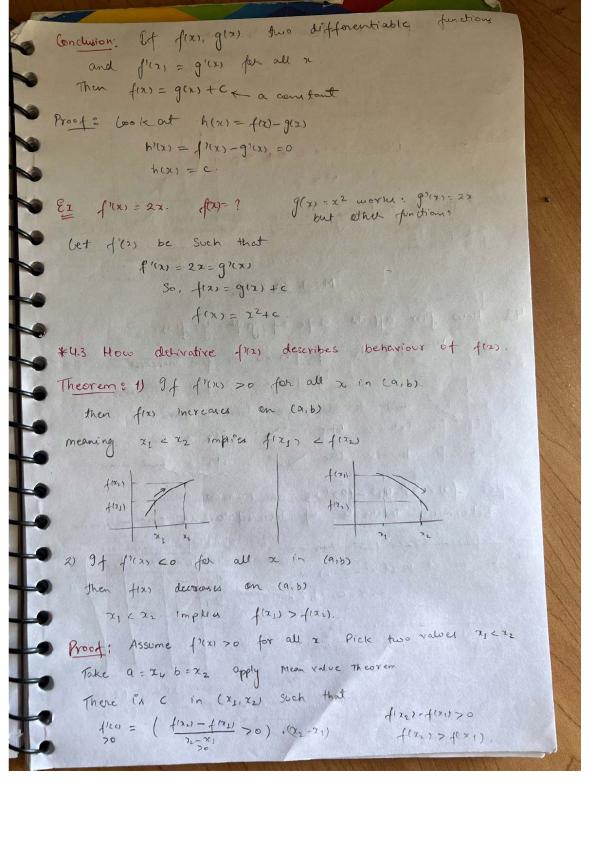 Conclusion: If f(x), g(x) two differentiable functions
and f'(x) = g'(x) for all x
Then f(x) = g(x) + C ← a constant
Proof: Look at h(x) = f(x) - g(x)
h'(x) = f'(x) - g'(x) = 0
h(x) = C.
Ex f'(x) = 2x. f(x) = ? g(x) = x² works: g'(x) = 2x
but other functions
Let f'(x) be such that
f'(x) = 2x = g'(x)
So, f(x) = g(x) + c
f(x) = x² + c.
*4.3 How derivative f'(x) describes behaviour of f(x).
Theorem: 1) If f'(x) > 0 for all x in (a,b).
then f(x) increases on (a,b)
meaning x₁ < x₂ implies f(x₁) < f(x₂)
f(x₂) f(x₁)
f(x₁) f(x₂)
x₁ x₂ x₁ x₂
2) If f'(x) < 0 for all x in (a,b)
then f(x) decreases on (a,b)
x₁ < x₂ implies f(x₁) > f(x₂).
Proof: Assume f'(x) > 0 for all x Pick two values x₁ < x₂
Take a = x₁, b = x₂ apply Mean value Theorem
There is C in (x₁, x₂) such that
f'(c) = ( f(x₂) - f(x₁) / x₂ - x₁ > 0 ) . (x₂ - x₁) f(x₂) - f(x₁) > 0
> 0 > 0 f(x₂) > f(x₁).